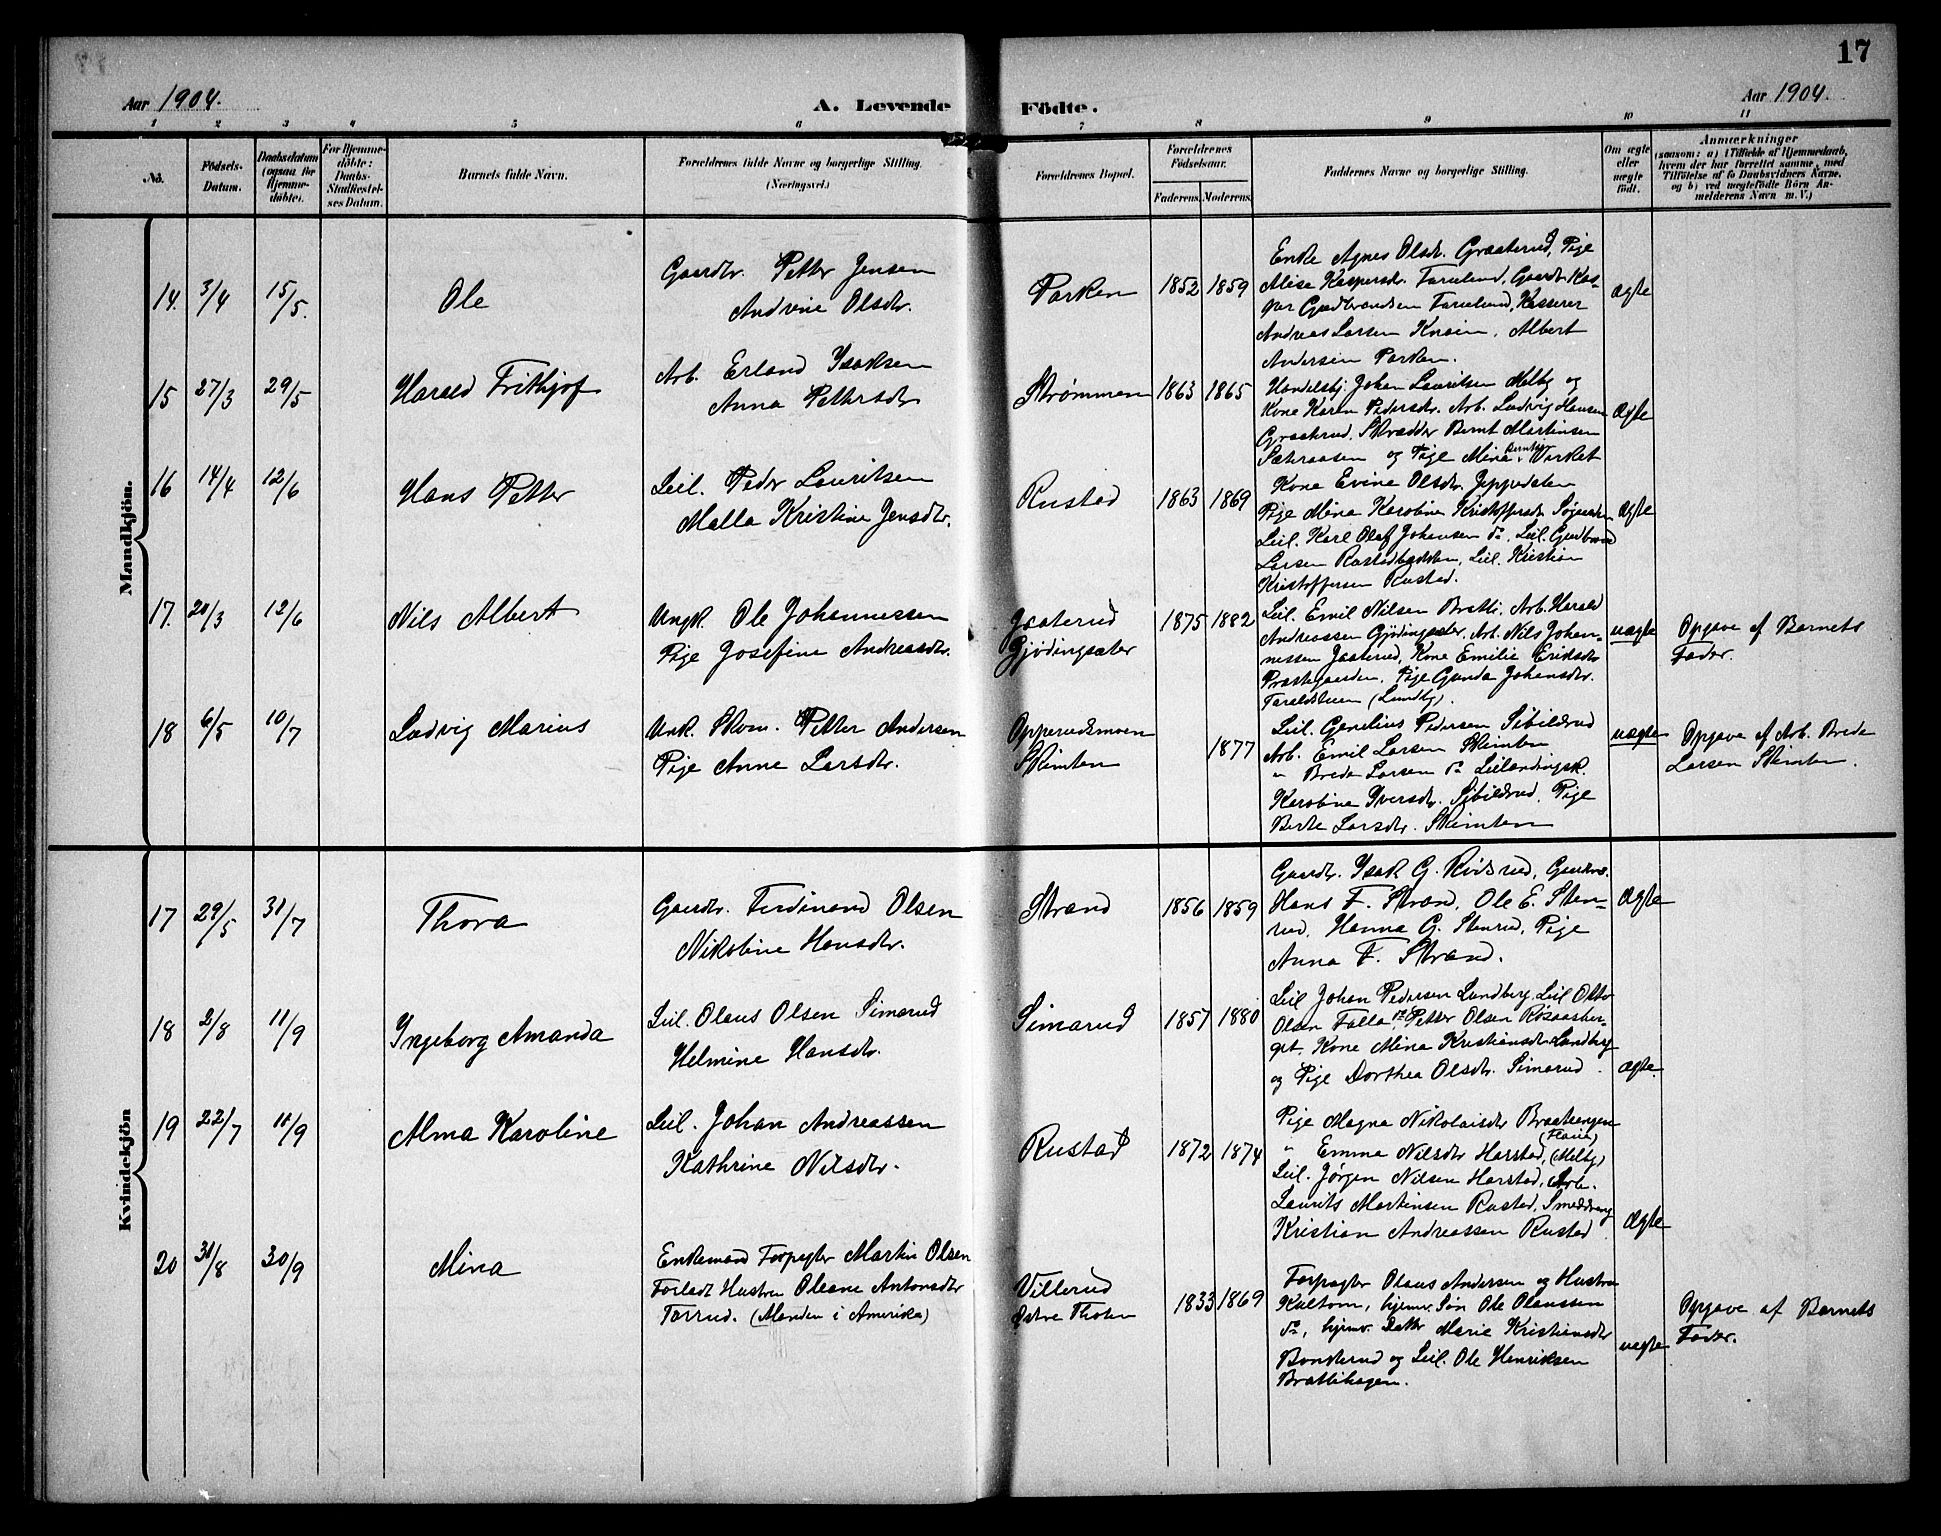 17
Aar 1904.
A. Levende Födte.
Aar 1904.
1 2 3 4 5 6 7 8 9 10 11
No.
Födsels-
Datum.
Daabsdatum
(ogsaa for
Hjemme-
döbte).
For Hjemme-
döbte:
Daabs-
Stadfæstel-
ses Datum.
Barnets fulde Navn.
Forældrenes fulde Navne og borgerlige Stilling.
(Næringsvei.)
Forældrenes Bopæl.
Forældrenes
Födselsaar.
Faderens. Moderens.
Faddernes Navne og borgerlige Stilling.
Om ægte
eller
uægte
födt.
Anmærkninger
(saasom: a) i Tilfælde af Hjemmedaab,
hvem der har forrettet samme, med
Tilföielse af to Daabsvidners Navne,
og b) ved uægtefödte Börn An-
melderens Navn m. V.)
Mandkjön.
14. 3/4 15/5.
Ole
Gaardbr. Petter Jensen
Andrine Olsdtr.
Parken
1852 1859
Enke Agnes Olsdtr. Graaterud, Pige
Alise Kaspersdtr. Farulund, Gaardbr. Kas-
per Gudbrandsen Farulund, Kasserer
Andreas Larsen Knain, Albert
Andersen Parken.
ægte
15 27/3 29/5
Harald Frithjof
Arb. Erland Ysaksen
Anna Pettersdtr
Strømmen
1863 1865
Handelsbj. Johan Lauritsen Melby og
Kone Karen Pedersdtr. Arb. Ludvig Hansen
Graaterud. Skrædder Bernt Martinsen
Sæteraasen og Pige Mina Berntsdtr. Virket
Ægte
16 14/4 12/6
Hans Petter
Leil. Peder Lauritsen
Malla Kristine Jensdtr.
Rustad
1863 1869
Kone Evine Olsdtr. Jeppedalen
Pige Mina Karoline Kristoffersdtr
Leil. Karl Olaf Johansen do. Leil. Gudbrand
Larsen Rustadbakken, Leil. Kristian
Kristoffersen Rustad.
Ægte
17. 20/3 12/6
Nils Albert
Ungk. Ole Johannessen
Pige Josefine Andreasdtr.
Jaaterud
Gjödingsæter
1875 1882
Leil. Emil Nilsen Bratli. Arb. Harald
Andreassen Gjödingsæter. Arb. Nils Johan-
nessen Jaaterud, Kone Emilie Eriksdtr
Præstegaarden, Pige Gunda Johansdtr.
Taraldstuen (Lundby).
uægte
Opgave af Barnets
Fader.
18 6/5 10/7
Ludvig Marius
Unk. Skom. Petter Andersen
Pige Anne Larsdtr.
Opperudsmoen
Skimten
1877
Leil. Cornelius Pedersen Sibilsrud
Arb. Emil Larsen Skimten
" Brede Larsen do
Karoline Iversdtr. Sibilsrud. Pige
Berte Larsdtr. Skimten
uægte
Opgave af Arb. Brede
Larsen Skimten.
Kvindekjön
17 29/5 31/7
Thora
Gaardbr. Ferdinand Olsen
Nikoline Hansdtr.
Strand
1856 1859
Gaardbr. Ysak G. Rødsrud, Gaardbr.
Hans F. Strand, Ole E. Sten-
rud, Hanna G. Stenrud, Pige
Anna F. Strand.
Ægte
18 2/8 11/9
Yngeborg Amanda
Leil. Olaus Olsen Simarud
Helmine Hansdtr.
Simarud
1857 1880
Leil Johan Pedersen Lundberg, Leil Otto
Olsen Falla, do Petter Olsen Rosaasber-
get. Kone Mina Kristiansdtr Lundberg
og Pige Dorthea Olsdtr. Simarud.
ægte.
19 22/7 11/9
Alma Karoline
Leil. Johan Andreassen
Kathrine Nilsdtr.
Rustad
1872 1874
Pige Magna Nikolaisdtr Braatengen
" Emma Nilsdtr Harstad, (Melby)
Leil. Jørgen Nilsen Harstad, Arb.
Laurits Martinsen Rustad, Smeddreng
Kristian Andreassen Rustad
Ægte
20 31/8 30/9
Mina
Enkemand Forpagter Martin Olsen
Forladt Hustru Oleane Antonsdtr
Torrud. (Manden i Amerika)
Villerud
Østre Thoten
1833 1869
Forpagter Olaus Andersen og Hustru
Kultom, hjemv. Søn Ole Olaussen
do, hjemv. Datter Marie Kristiansdtr
Bonsterud og Leil. Ole Henriksen
Brattlihagen.
uægte
Opgave af Barnets
Fader.